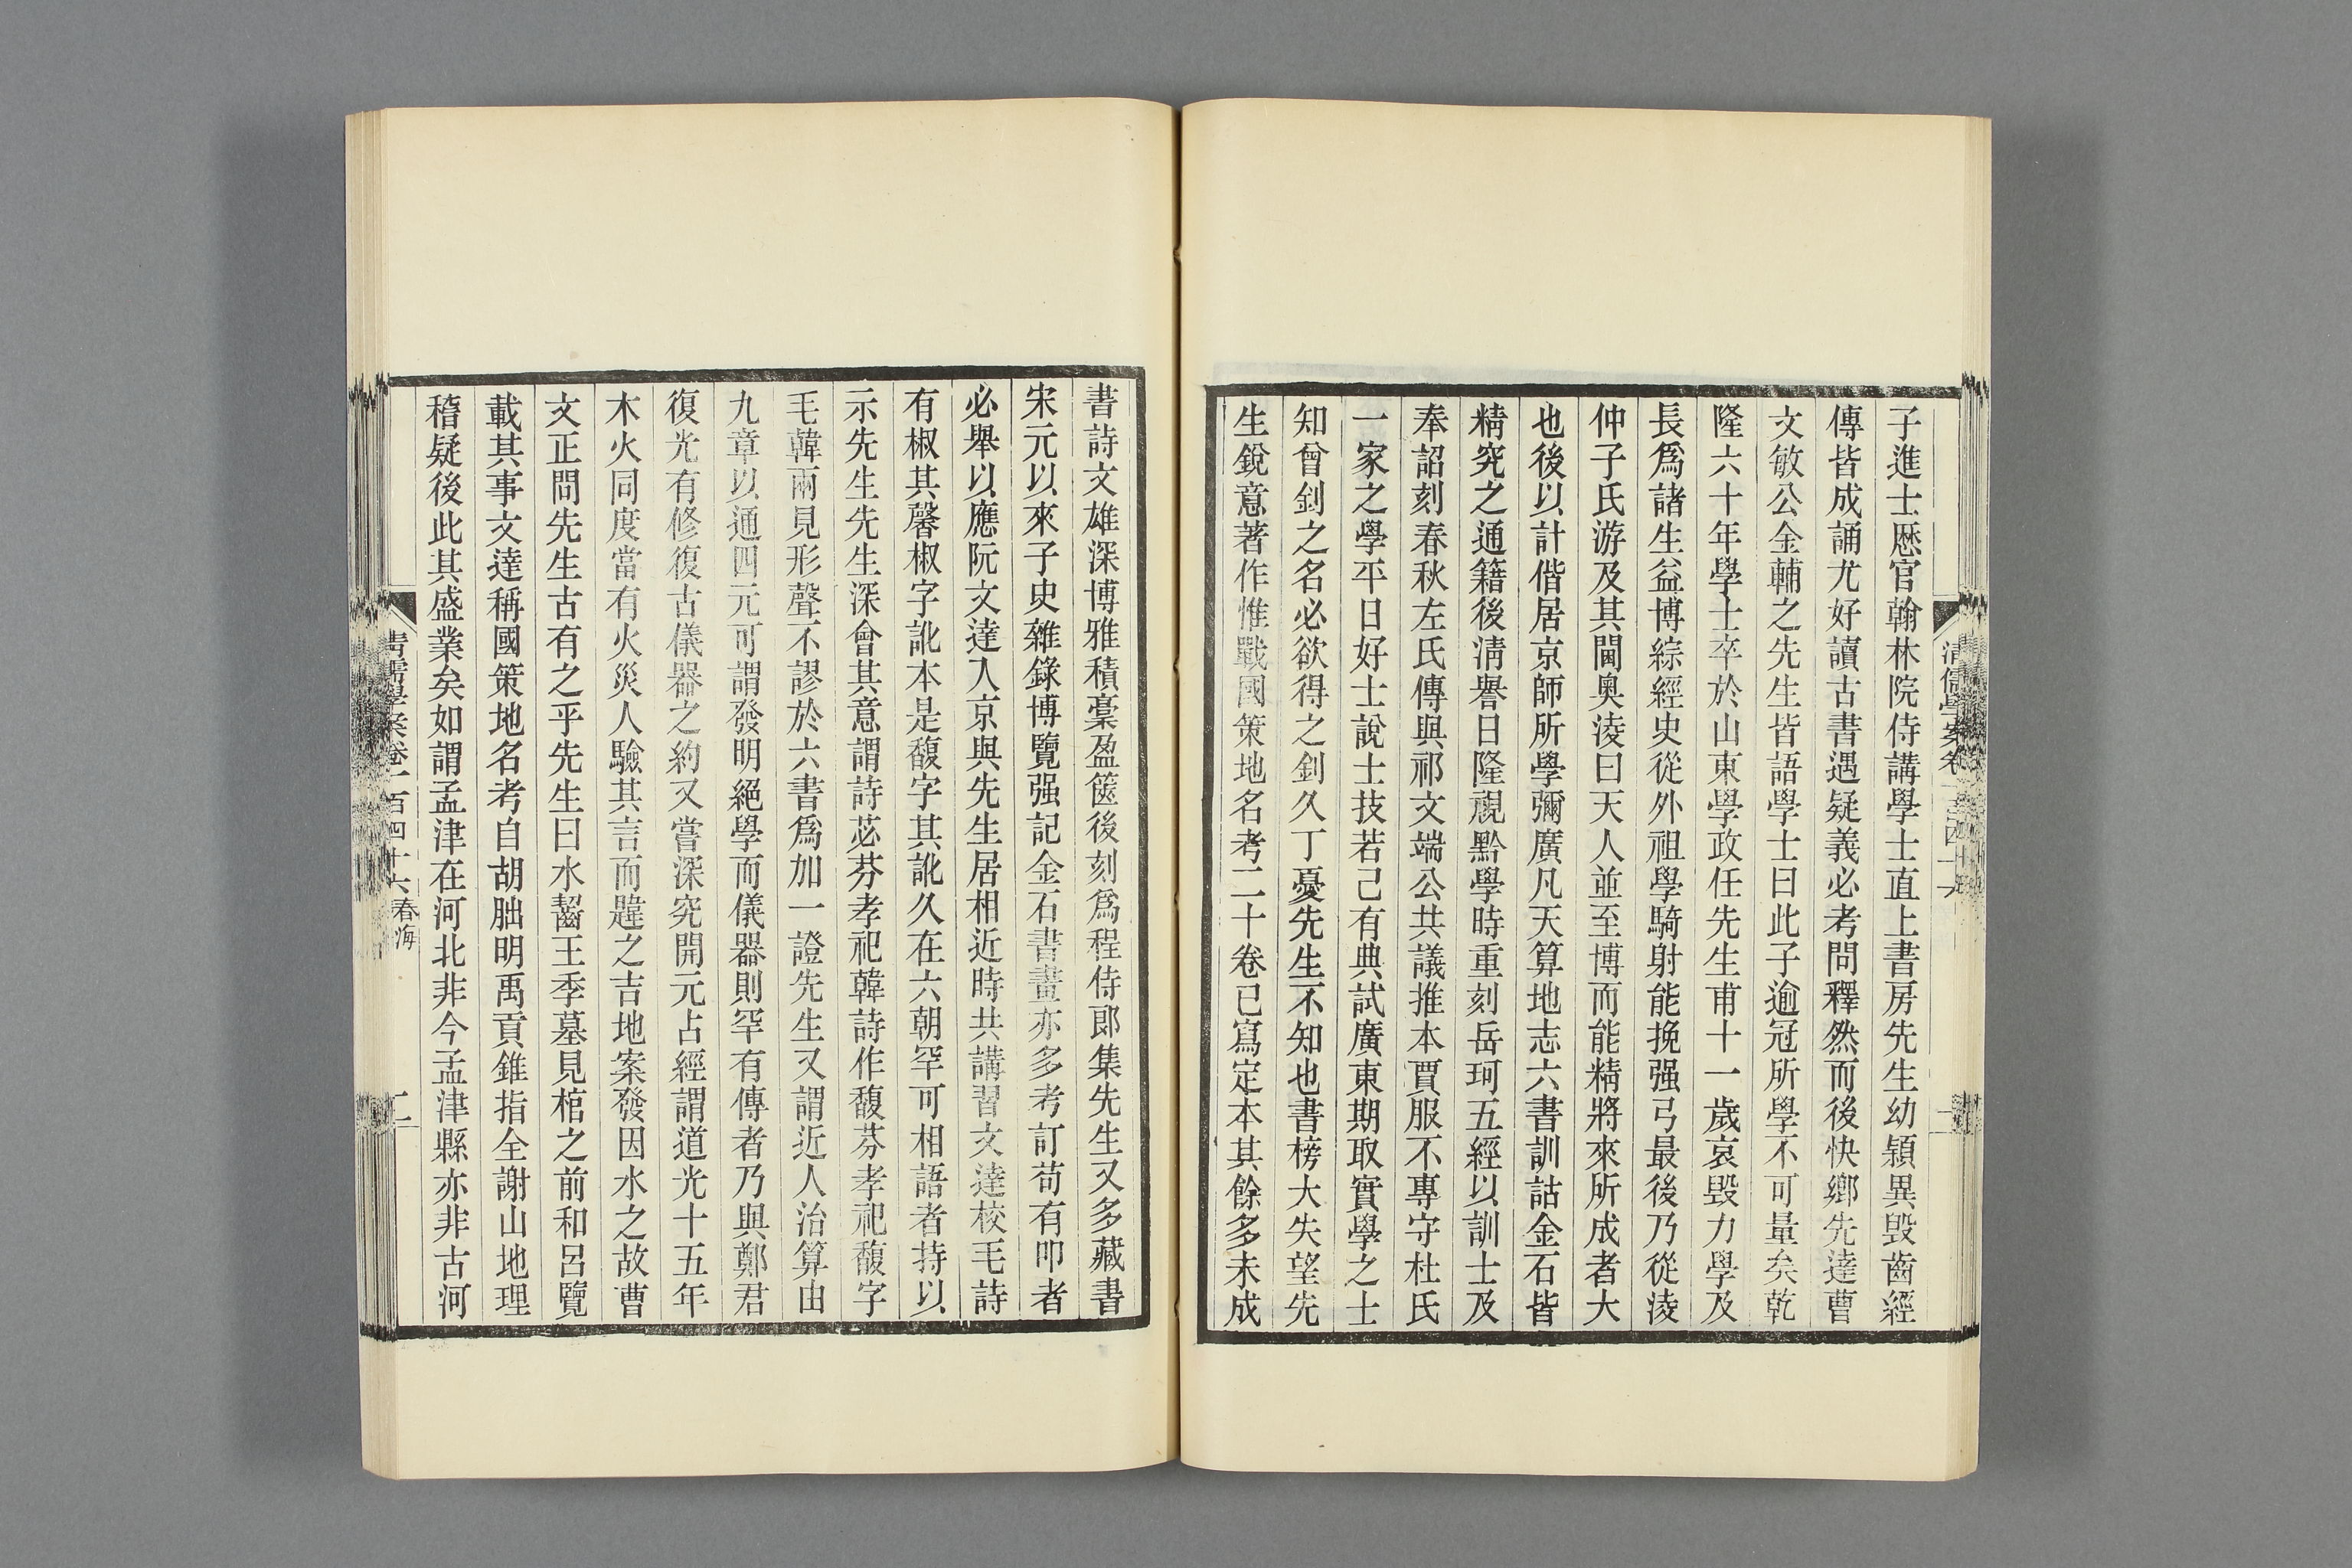 子進士歷官翰林院侍講學士直上書房先生幼穎異毀齒經
傳皆成誦尤好讀古書遇疑義必考問釋然而後快鄉先達曹
文敏公金輔之先生皆語學士曰此子逾冠所學不可量矣乾
隆六十年學士卒於山東學政任先生甫十一歲哀毀力學及
長爲諸生益博綜經史從外祖學騎射能挽强弓最後乃從淩
仲子氏游及其閫奧淩曰天人並至博而能精將來所成者大
也後以計偕居京師所學彌廣凡天算地志六書訓詁金石皆
精究之通籍後淸譽日隆視黔學時重刻岳珂五經以訓士及
奉詔刻春秋左氏傳與祁文端公共議推本賈服不專守杜氏
一家之學平日好士說士技若己有典試廣東期取實學之士
知曾釗之名必欲得之釗久丁憂先生不知也書榜大失望先
生銳意著作惟戰國策地名考二十卷已寫定本其餘多未成
書詩文雄深博雅積稾盈篋後刻爲程侍郎集先生又多藏書
宋元以來子史雜錄博覽强記金石書畫亦多考訂苟有叩者
必舉以應阮文達入京與先生居相近時共講習文達校毛詩
有椒其馨椒字訛本是馥字其訛久在六朝罕可相語者持以
示先生先生深會其意謂詩苾芬孝祀韓詩作馥芬孝祀馥字
毛韓兩見形聲不謬於六書爲加一證先生又謂近人治算由
九章以通四元可謂發明絕學而儀器則罕有傳者乃與鄭君
復光有修復古儀器之約又嘗深究開元占經謂道光十五年
木火同度當有火災人驗其言而韙之吉地案發因水之故曹
文正問先生古有之乎先生曰水齧王季墓見棺之前和呂覽
載其事文達稱國策地名考自胡朏明禹貢錐指全謝山地理
稽疑後此其盛業矣如謂孟津在河北非今孟津縣亦非古河
淸儒學案卷一百四十六 春海
二